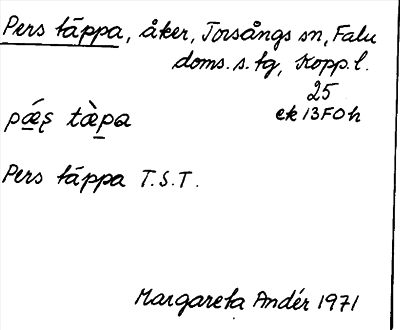 Pers täppa, åker, Torsångs sn, Falu
doms. s. tg, Kopp. l.
25
ek 13F0h
pǽ̲ʂ tæ̀p̲a
Pers täppa T.S.T.
Margareta Andér 1971